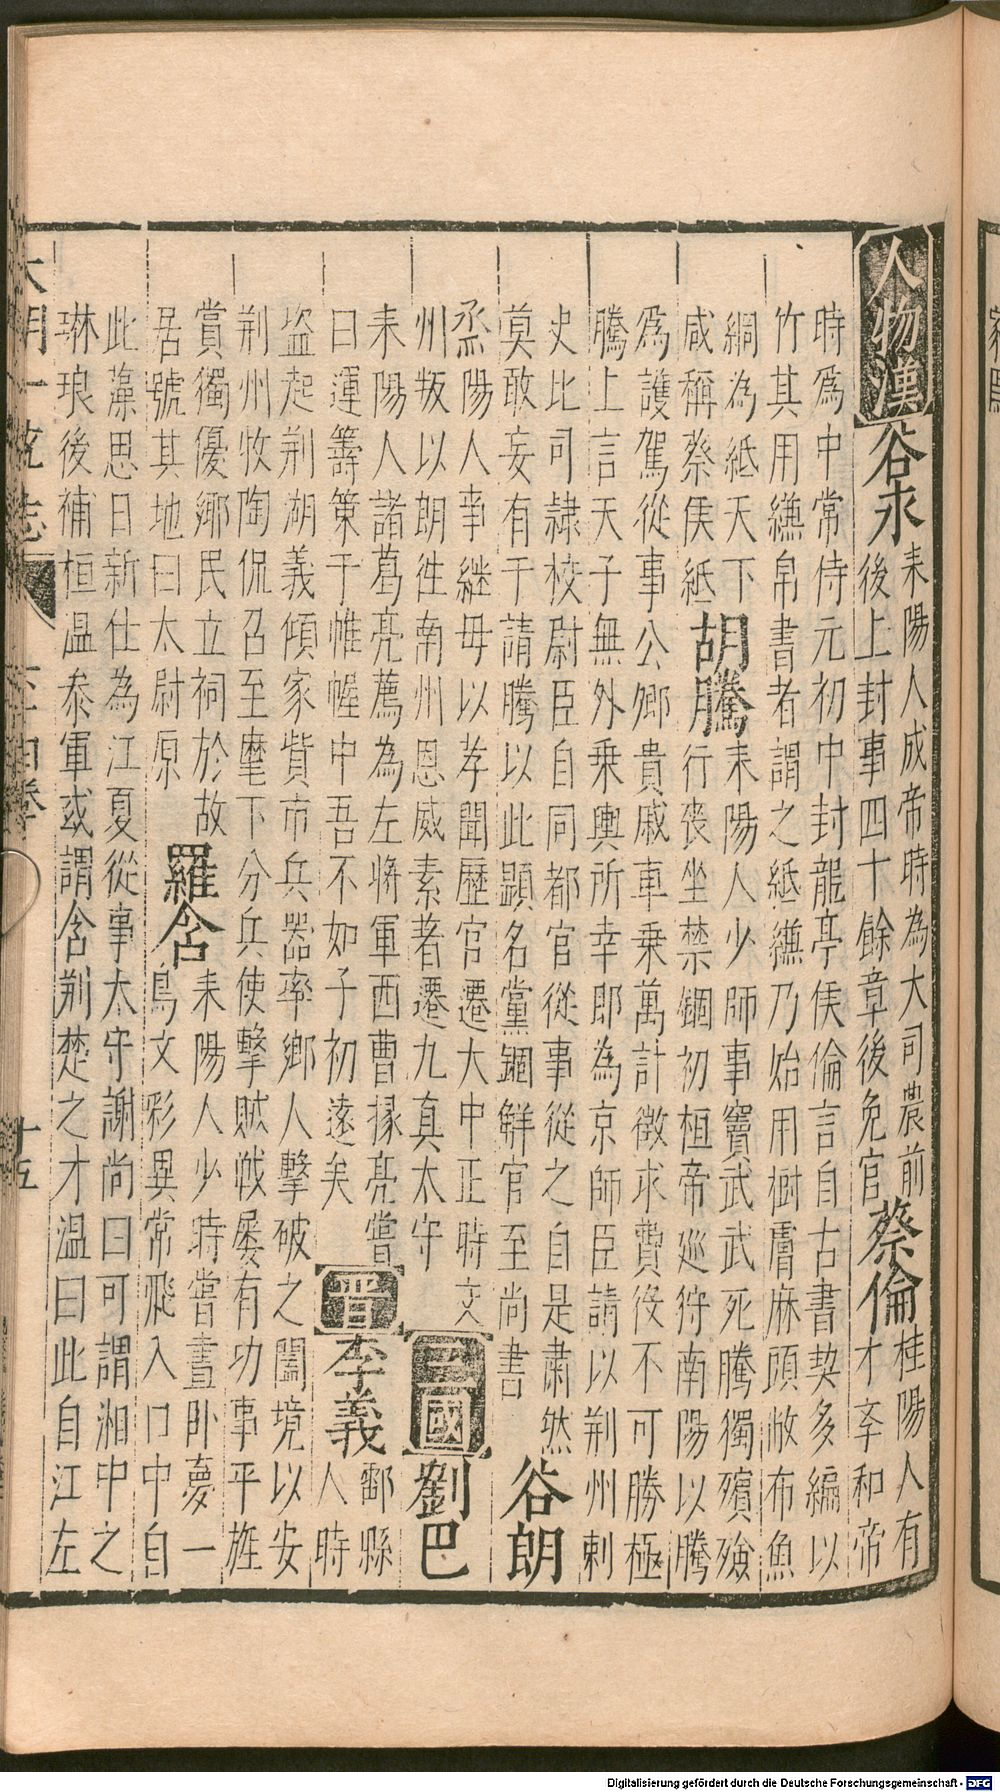 人物漢谷永耒陽人成帝時為大司農前
後上封事四十餘章後免官蔡倫桂陽人有
才辛和帝
時爲中常侍元初中封龍亭侯倫言自古書契多編以
竹其用縑帛書者謂之紙縑乃始用樹膚麻頭敝布魚
網為紙天下
咸稱蔡侯紙胡騰耒陽人少師事竇武武死騰獨殯殮
行喪坐禁錮初桓帝廵狩南陽以騰
爲護駕從事公卿貴戚車乗萬計徵求費役不可勝極
騰上言天子無外乗輿所幸即為京師臣請以荆州剌
史比司隷校尉臣自同都官從事從之自是肅然
莫敢妄有干請騰以此顯名黨錮觧官至尚書谷朗
烝陽人事継母以孝聞歷官遷大中正時交
州叛以朗徃南州恩威素著遷九真太守三國劉巴
耒陽人諸葛亮薦為左將軍西曹掾亮嘗
曰運籌策于帷幄中吾不如子初遠矣晋李義酃縣
人時
盗起荆湖義傾家貲市兵噐率鄉人擊破之闔境以安
荆州牧陶侃召至麾下分兵使擊賊戕屡有功事平旌
賞獨優鄉民立祠於故
居號其地曰太尉原羅含耒陽人少時嘗晝卧夢一
鳥文彩異常飛入口中自
此藻思日新仕為江夏從事太守謝尚曰可謂湘中之
琳琅後補桓温叅軍或謂含荆楚之才温曰此自江左
大明一統志
十五